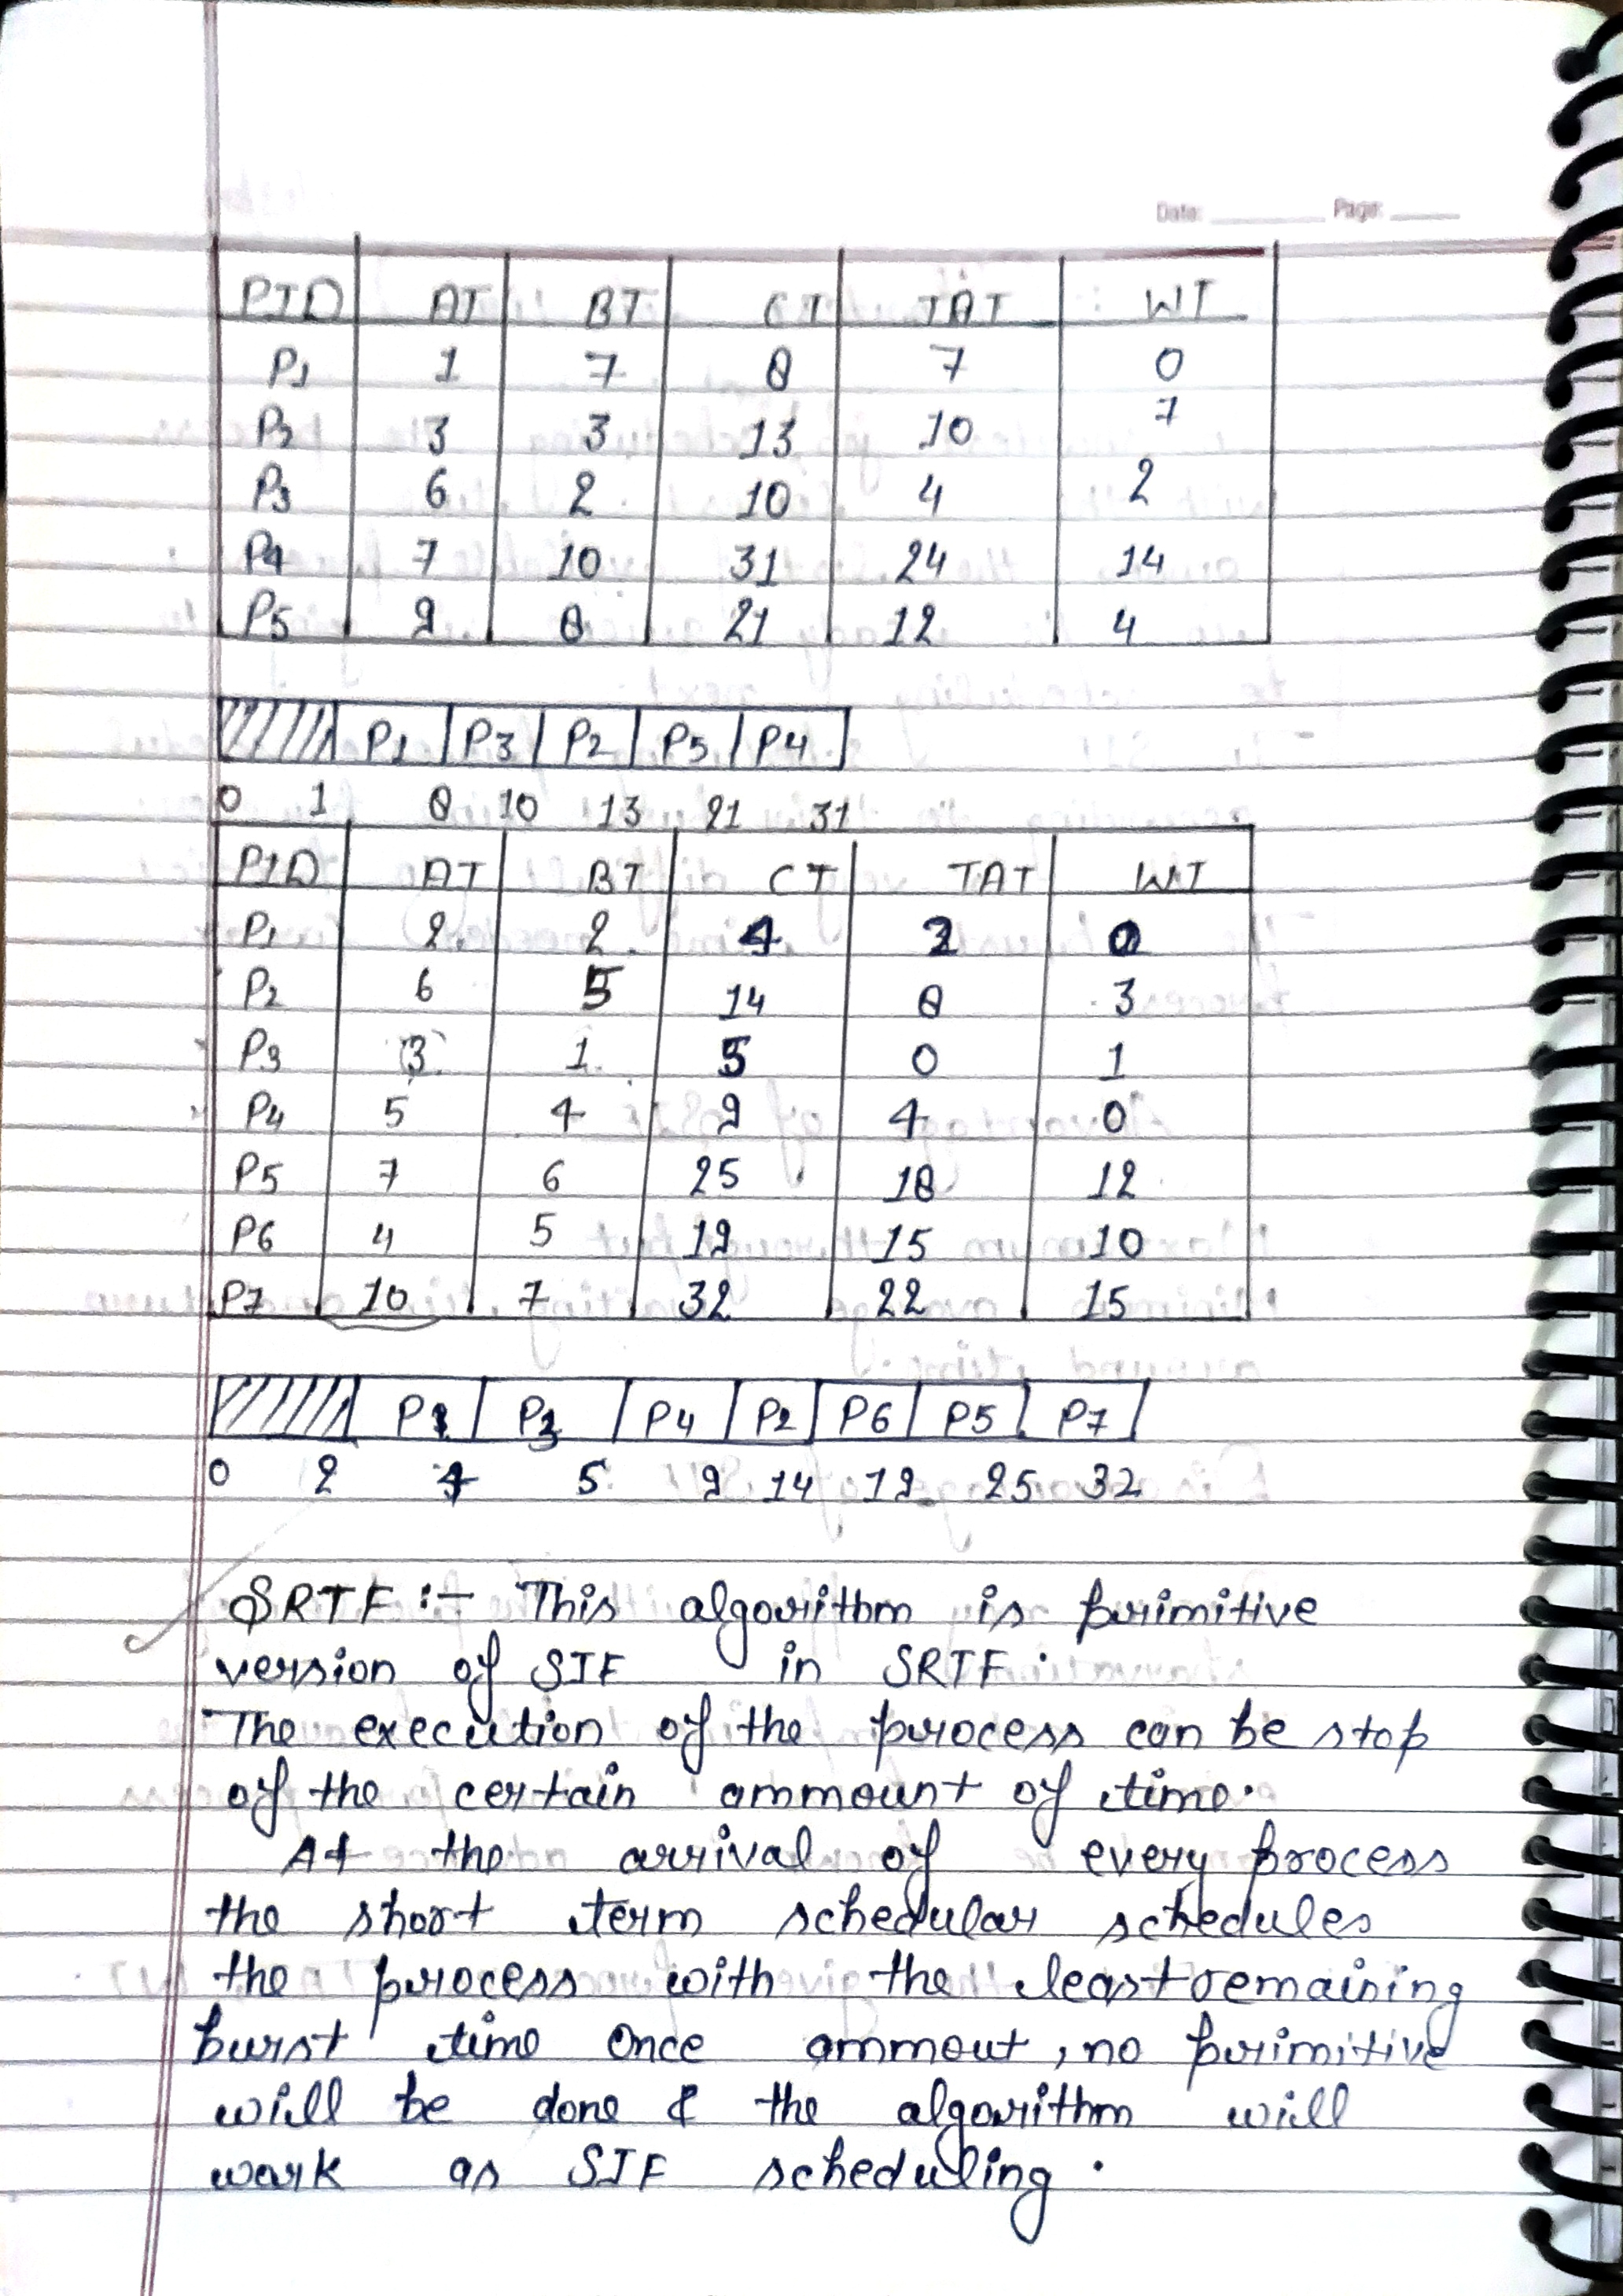 Date: Page:
PID AT BT CT TAT WT
P1 1 7 8 7 0
P2 3 3 13 10 7
P3 6 2 10 4 2
P4 7 10 31 24 14
P5 9 8 21 12 4
P1 P3 P2 P5 P4
0 1 8 10 13 21 31
PID AT BT CT TAT WT
P1 2 2 4 2 0
P2 6 5 14 8 3
P3 3 1 5 0 1
P4 5 4 9 4 0
P5 7 6 25 18 12
P6 4 5 19 15 10
P7 10 7 32 22 15
P1 P3 P4 P2 P6 P5 P7
0 2 4 5 9 14 19 25 32
SRTF :- This algorithm is primitive
version of SJF in SRTF.
The execution of the process can be stop
of the certain ammount of time.
At the arrival of every process
the short term schedular schedules
the process with the least remaining
burst time once ammout, no primitive
will be done & the algorithm will
work as SJF scheduling.